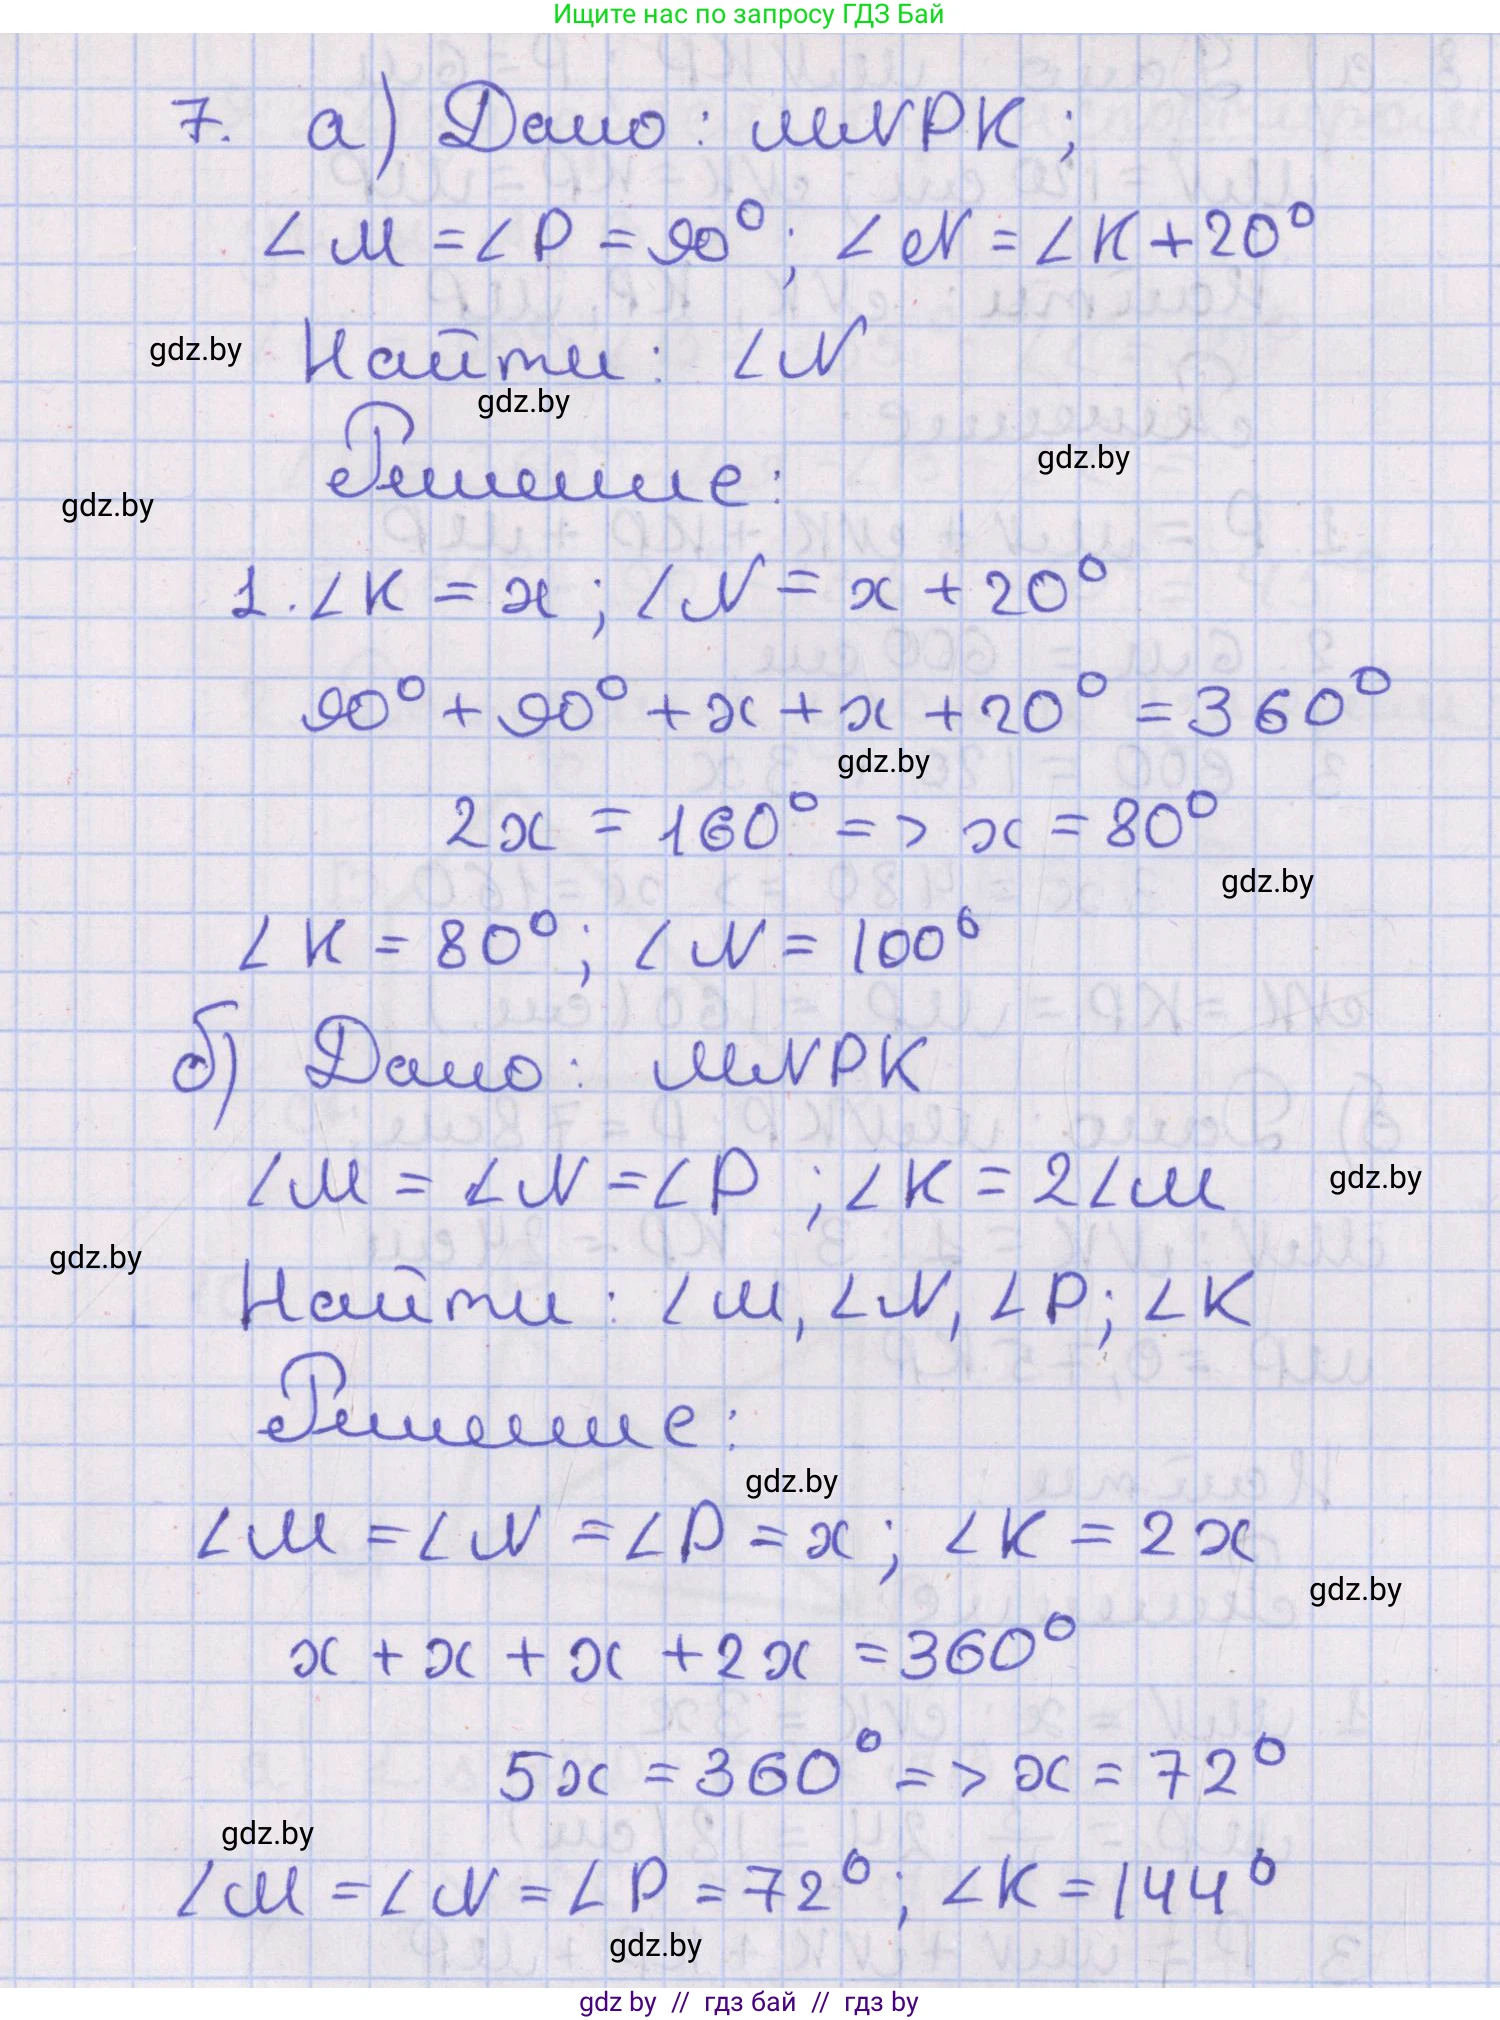 Ищите нас по запросу ГДЗ Бай
7. а) Дано: MNPK;
∠M = ∠P = 90°; ∠N = ∠K + 20°
gdz.by
Найти: ∠N
gdz.by
Решение:
gdz.by
gdz.by
1. ∠K = x; ∠N = x + 20°
90° + 90° + x + x + 20° = 360°
gdz.by
2x = 160° => x = 80°
gdz.by
∠K = 80°; ∠N = 100°
б) Дано: MNPK
∠M = ∠N = ∠P; ∠K = 2∠M
gdz.by
gdz.by
Найти: ∠M, ∠N, ∠P; ∠K
Решение:
gdz.by
∠M = ∠N = ∠P = x; ∠K = 2x
gdz.by
x + x + x + 2x = 360°
5x = 360° => x = 72°
gdz.by
∠M = ∠N = ∠P = 72°; ∠K = 144°
gdz.by
gdz by // гдз бай // гдз by